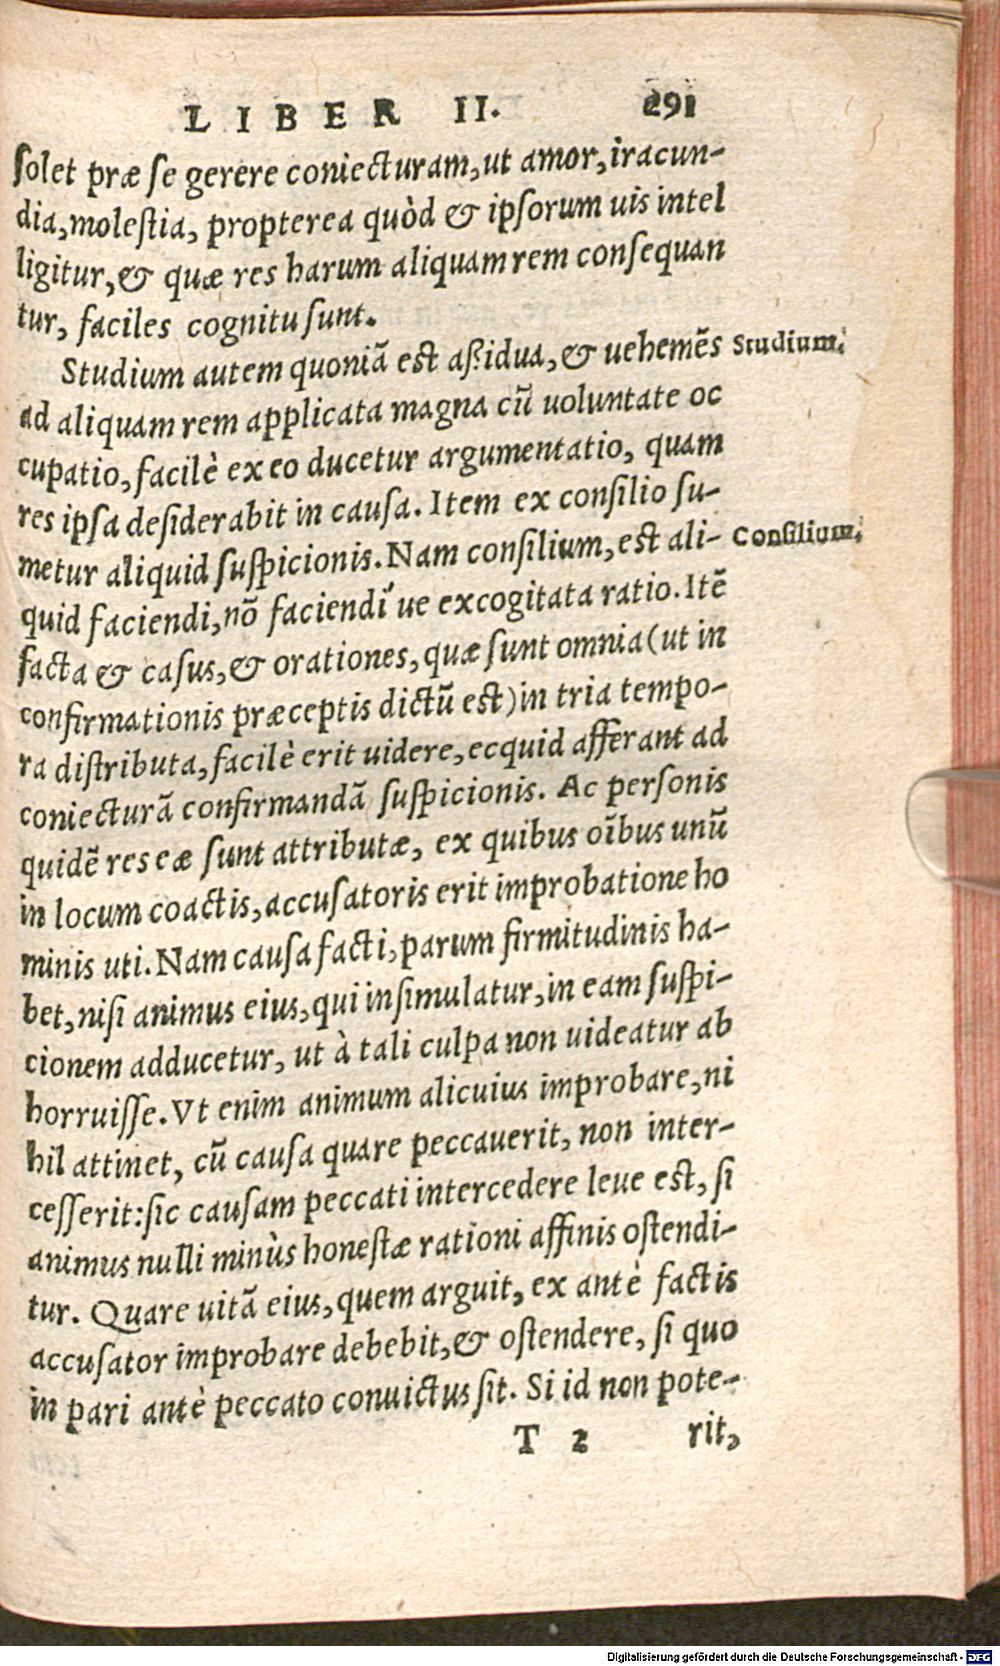 LIBER II. 291
solet præ se gerere coniecturam, ut amor, iracun-
dia, molestia, propterea quòd & ipsorum uis intel
ligitur, & quæ res harum aliquam rem consequan
tur, faciles cognitu sunt.
Studium autem quoniã est aſsidua, & uehemẽs Studium.
ad aliquam rem applicata magna cũ uoluntate oc
cupatio, facilè ex eo ducetur argumentatio, quam
res ipsa desiderabit in causa. Item ex consilio su-
metur aliquid suspicionis. Nam consilium, est ali- Consilium.
quid faciendi, nõ faciendi ue excogitata ratio. Itẽ
facta & casus, & orationes, quæ sunt omnia (ut in
confirmationis præceptis dictũ est) in tria tempo-
ra distributa, facilè erit uidere, ecquid afferant ad
coniecturã confirmandã suspicionis. Ac personis
quidẽ res eæ sunt attributæ, ex quibus oĩbus unũ
in locum coactis, accusatoris erit improbatione ho
minis uti. Nam causa facti, parum firmitudinis ha-
bet, nisi animus eius, qui insimulatur, in eam suspi-
cionem adducetur, ut à tali culpa non uideatur ab
horruisse. Vt enim animum alicuius improbare, ni
hil attinet, cũ causa quare peccauerit, non inter-
cesserit: sic causam peccati intercedere leue est, si
animus nulli minùs honestæ rationi affinis ostendi-
tur. Quare uitã eius, quem arguit, ex antè factis
accusator improbare debebit, & ostendere, si quo
in pari antè peccato conuictus sit. Si id non pote-
T 2 rit,
Digitalisierung gefördert durch die Deutsche Forschungsgemeinschaft - DFG